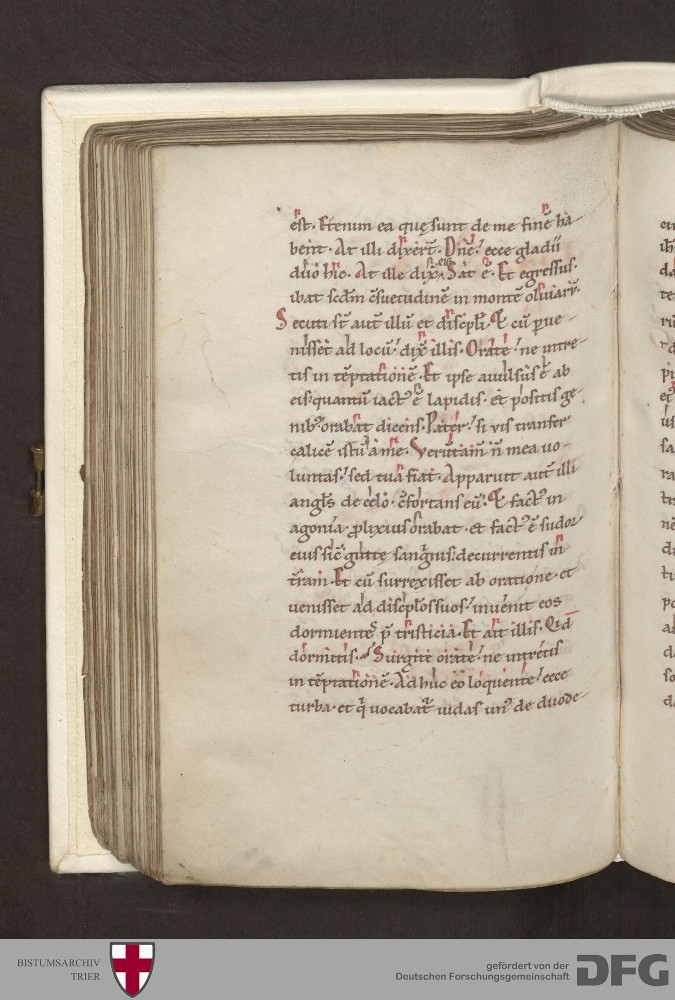 est. Etenim ea quę sunt de me finē ha-
bent. At illi dixert̄. Dn̄e, ecce gladii
duo hic. At ille dix̄ eis Sat ē. Et egressus
ibat scd̄m ċsuetudinē in montē oliuarū.
Secuti st̄ aut̄ illū et discipl̄i. Et cū ꝑue-
nisset ad locū, dix̄ illis. Orate, ne intre-
tis in tēptationē. Et ipse auulsus ē ab
eis quantū iactꝰ ē lapidis. et positis ge-
nibꝰ orabat dicens. Pater, si vis transfer
calicē istū a me. Verūtam̄ n̄ mea uo-
luntas, sed tua fiat. Apparuit aut̄ illi
angl̄s de cęlo c̄fortans eū. Et factꝰ in
agonia. ꝓlixius orabat. et factꝰ ē sudor
eius sic̄ guttę sanguis decurrentis in
t̄ram. Et cū surrexisset ab oratione. et
uenisset ad discipl̄os suos, inuenit eos
dormientes p̄ tristicia. Et ait illis. Qid
dormitis. Surgite orate, ne intretis
in tēptationē. Adhuc eo loquente, ecce
turba. et q̄ uocabat̄ iudas unꝰ de duode-
BISTUMSARCHIV
TRIER
gefördert von der
Deutschen Forschungsgemeinschaft
DFG